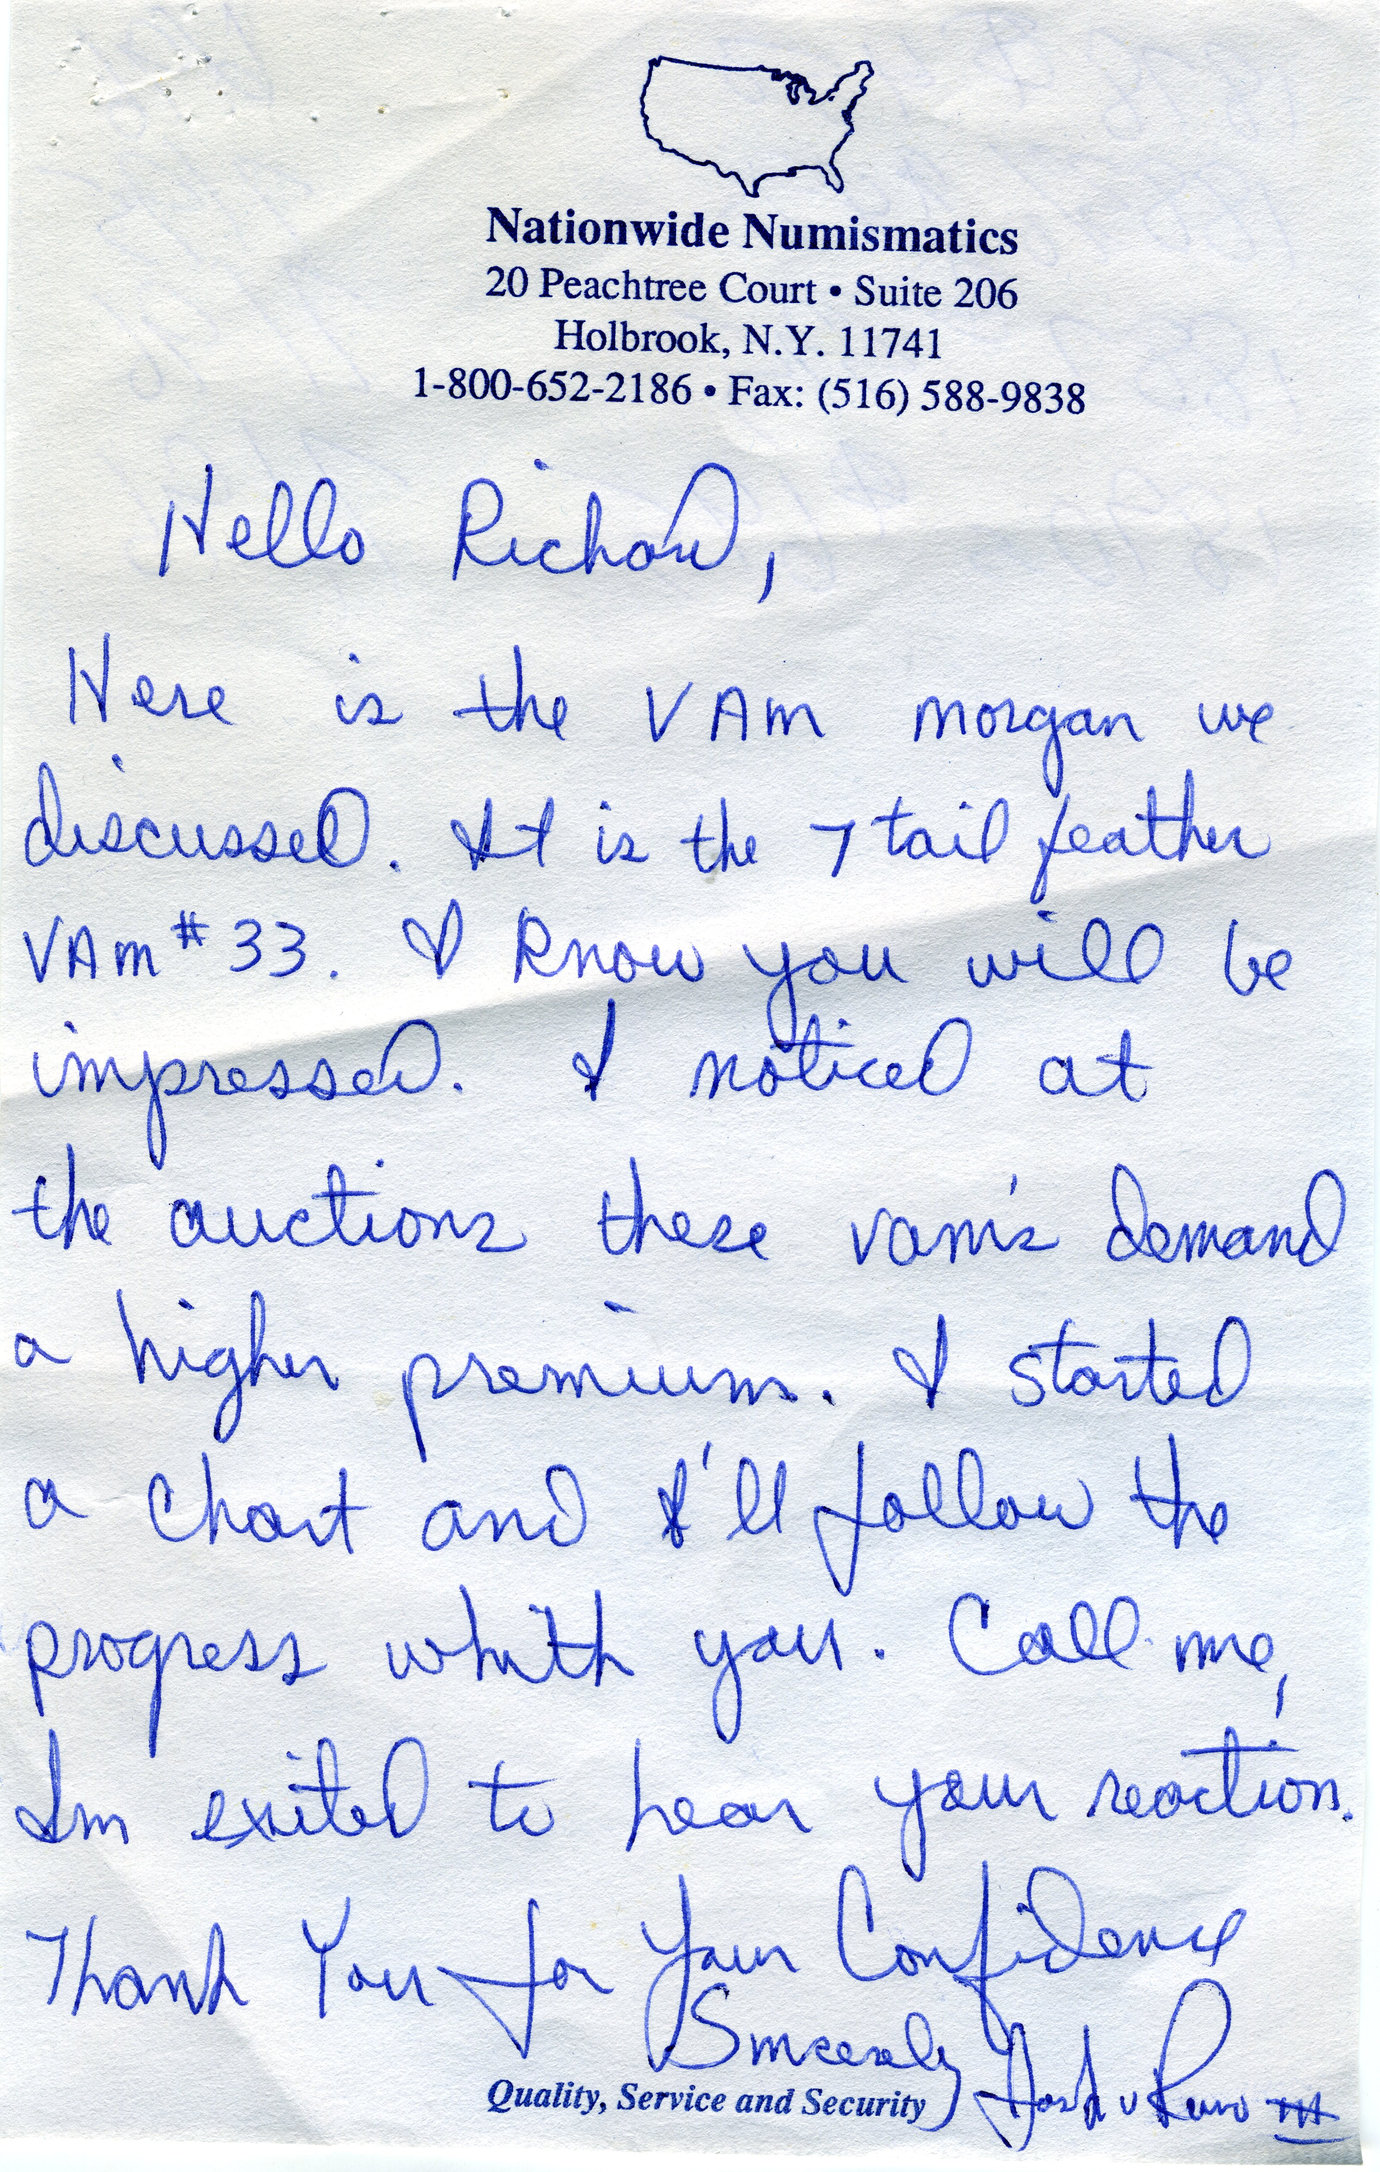 Nationwide Numismatics
20 Peachtree Court • Suite 206
Holbrook, N.Y. 11741
1-800-652-2186 • Fax: (516) 588-9838
Hello Richard,
Here is the VAM morgan we
discussed. It is the 7 tail feather
VAM #33. I know you will be
impressed. I noticed at
the auctions these vam's demand
a higher premium. I started
a chart and I'll follow the
progress whith you. Call me,
Im exited to hear your reaction.
Thank You for Your Confidence
Sincerely
Quality, Service and Security
III